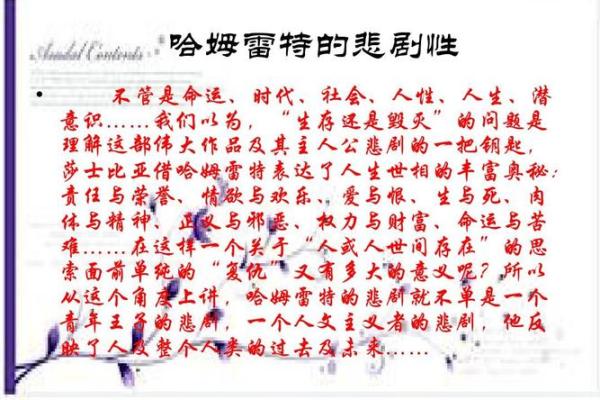 Annual Contents
哈姆雷特的悲剧性
• 不管是命运、时代、社会、人性、人生、潜
意识……我们以为，“生存还是毁灭”的问题是
理解这部伟大作品及其主人公悲剧的一把钥匙，
莎士比亚借哈姆雷特表达了人生世相的丰富奥秘：
责任与荣誉、情欲与欢乐、爱与恨、生与死、肉
体与精神、正义与邪恶、权力与财富、命运与苦
难……在这样一个关于“人或人世间存在”的思
索面前单纯的“复仇”又有多大的意义呢？所以
从这个角度上讲，哈姆雷特的悲剧就不单是一个
青年王子的悲剧，一个人文主义者的悲剧，他反
映了人及整个人类的过去及未来……